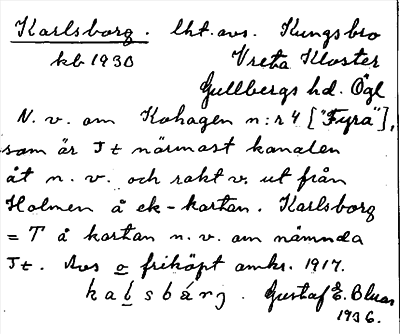 Karlsborg. lht. avs. Kungsbro
kb 1930 Vreta Kloster
Gullbergs hd. Ögl
N. v. om Kohagen n:r 4 ["Fyra"],
som är Jt närmast kanalen
åt n. v. och rakt v. ut från
Holmen å ek-kartan. Karlsborg
= T å kartan n. v. om nämnda
Jt. Avs o friköpt omkr. 1917.
kalsbárj. Gustaf E. Bluas
1936.